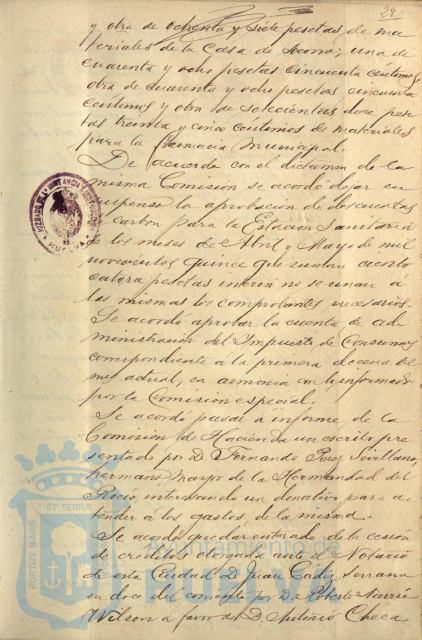 28
y otra de ochenta y siete pesetas de ma-
teriales de la Casa de Socorro; una de
cuarenta y ocho pesetas cincuenta céntimos,
otra de cuarenta y ocho pesetas cincuenta
céntimos y otra de setecientas doce pese-
tas treinta y cinco céntimos de materiales
para la farmacia Municipal.
De acuerdo con el dictamen de la
misma Comisión se acordó dejar en
suspenso la aprobación de dos cuentas
de carbón para la Estación Sanitaria
de los meses de Abril y Mayo de mil
novecientos quince que suman ciento
catorce pesetas interin no se unan á
las mismas los comprobantes necesarios.
Se acordó aprobar la cuenta de ad-
ministración del Impuesto de Consumos
correspondiente a la primera decena del
mes actual, en armonia con lo informado
por la Comisión especial.
Se acordó pasar á informe de la
Comisión de Hacienda un escrito pre-
sentado por D. Fernando Perez Sevillano,
hermano mayor de la Hermandad del
Rocio, interesando un donativo para a-
tender á los gastos de la misma.
Se acordó quedar enterado de la cesión
de créditos otorgada ante el Notario
de esta Ciudad D. Juan Cádiz Serrano
en doce del corriente por D. Roberto
Wilson a favor de D. Antonio Checa
HUELVA
PORTUS MARIS ET TERRAE